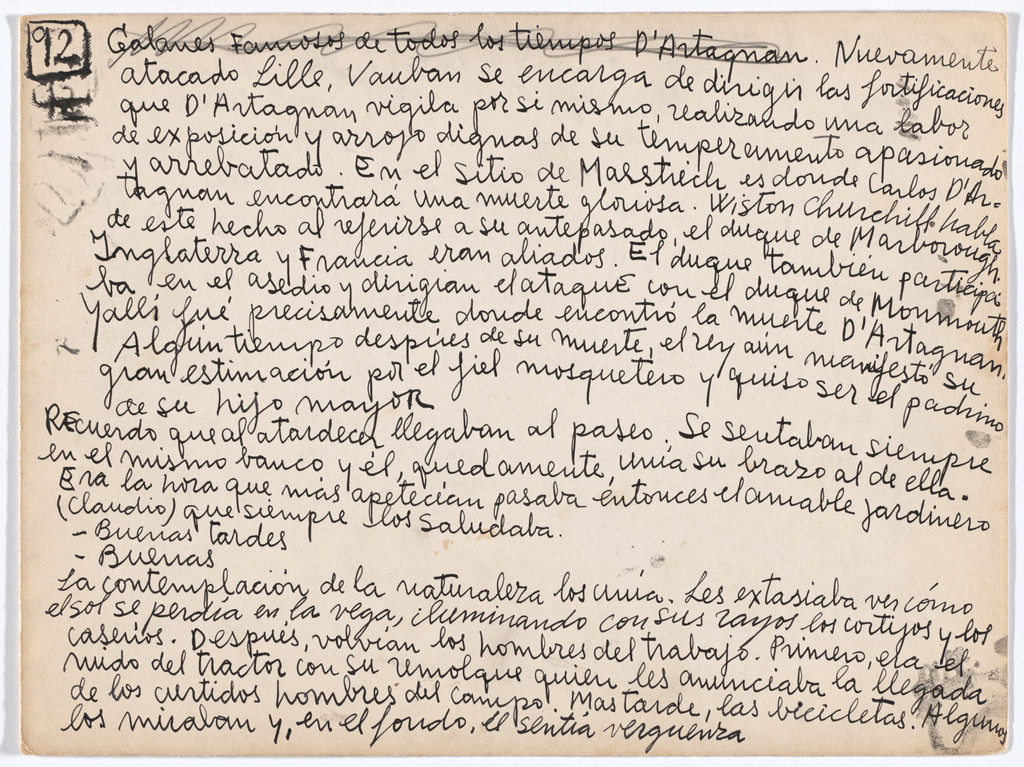 92
Galanes Famosos de todos los tiempos D'Artagnan. Nuevamente
atacado Lille, Vauban se encarga de dirigir las fortificaciones
que D'Artagnan vigila por si mismo, realizando una labor
de exposición y arrojo dignas de su temperamento apasionado
y arrebatado. En el Sitio de Masstrech es donde Carlos D'Ar-
tagnan encontrará una muerte gloriosa. Wiston Churchill habla
de este hecho al referirse a su antepasado, el duque de Marborough.
Inglaterra y Francia eran aliados. El duque también participa
ba en el asedio y dirigian el ataque con el duque de Monmouth
y allí fué precisamente donde encontró la muerte D'Artagnan.
Algún tiempo despúes de su muerte, el rey aún manifestó su
gran estimación por el fiel mosquetero y quiso ser el padrino
de su hijo mayor
Recuerdo que al atardecer llegaban al paseo. Se sentaban siempre
en el mismo banco y él, quedamente, unía su brazo al de ella.
Era la hora que más apetecían pasaba entonces el amable jardinero
(Claudio) que siempre los saludaba.
- Buenas tardes
- Buenas
La contemplación de la naturaleza los unía. Les extasiaba ver cómo
el sol se perdía en la vega, iluminando con sus rayos los cortijos y los
caserios. Después, volvían los hombres del trabajo. Primero, era el
ruido del tractor con su remolque quien les anunciaba la llegada
de los curtidos hombres del campo. Mas tarde, las bicicletas. Algunos
los miraban y, en el fondo, él sentía verguenza